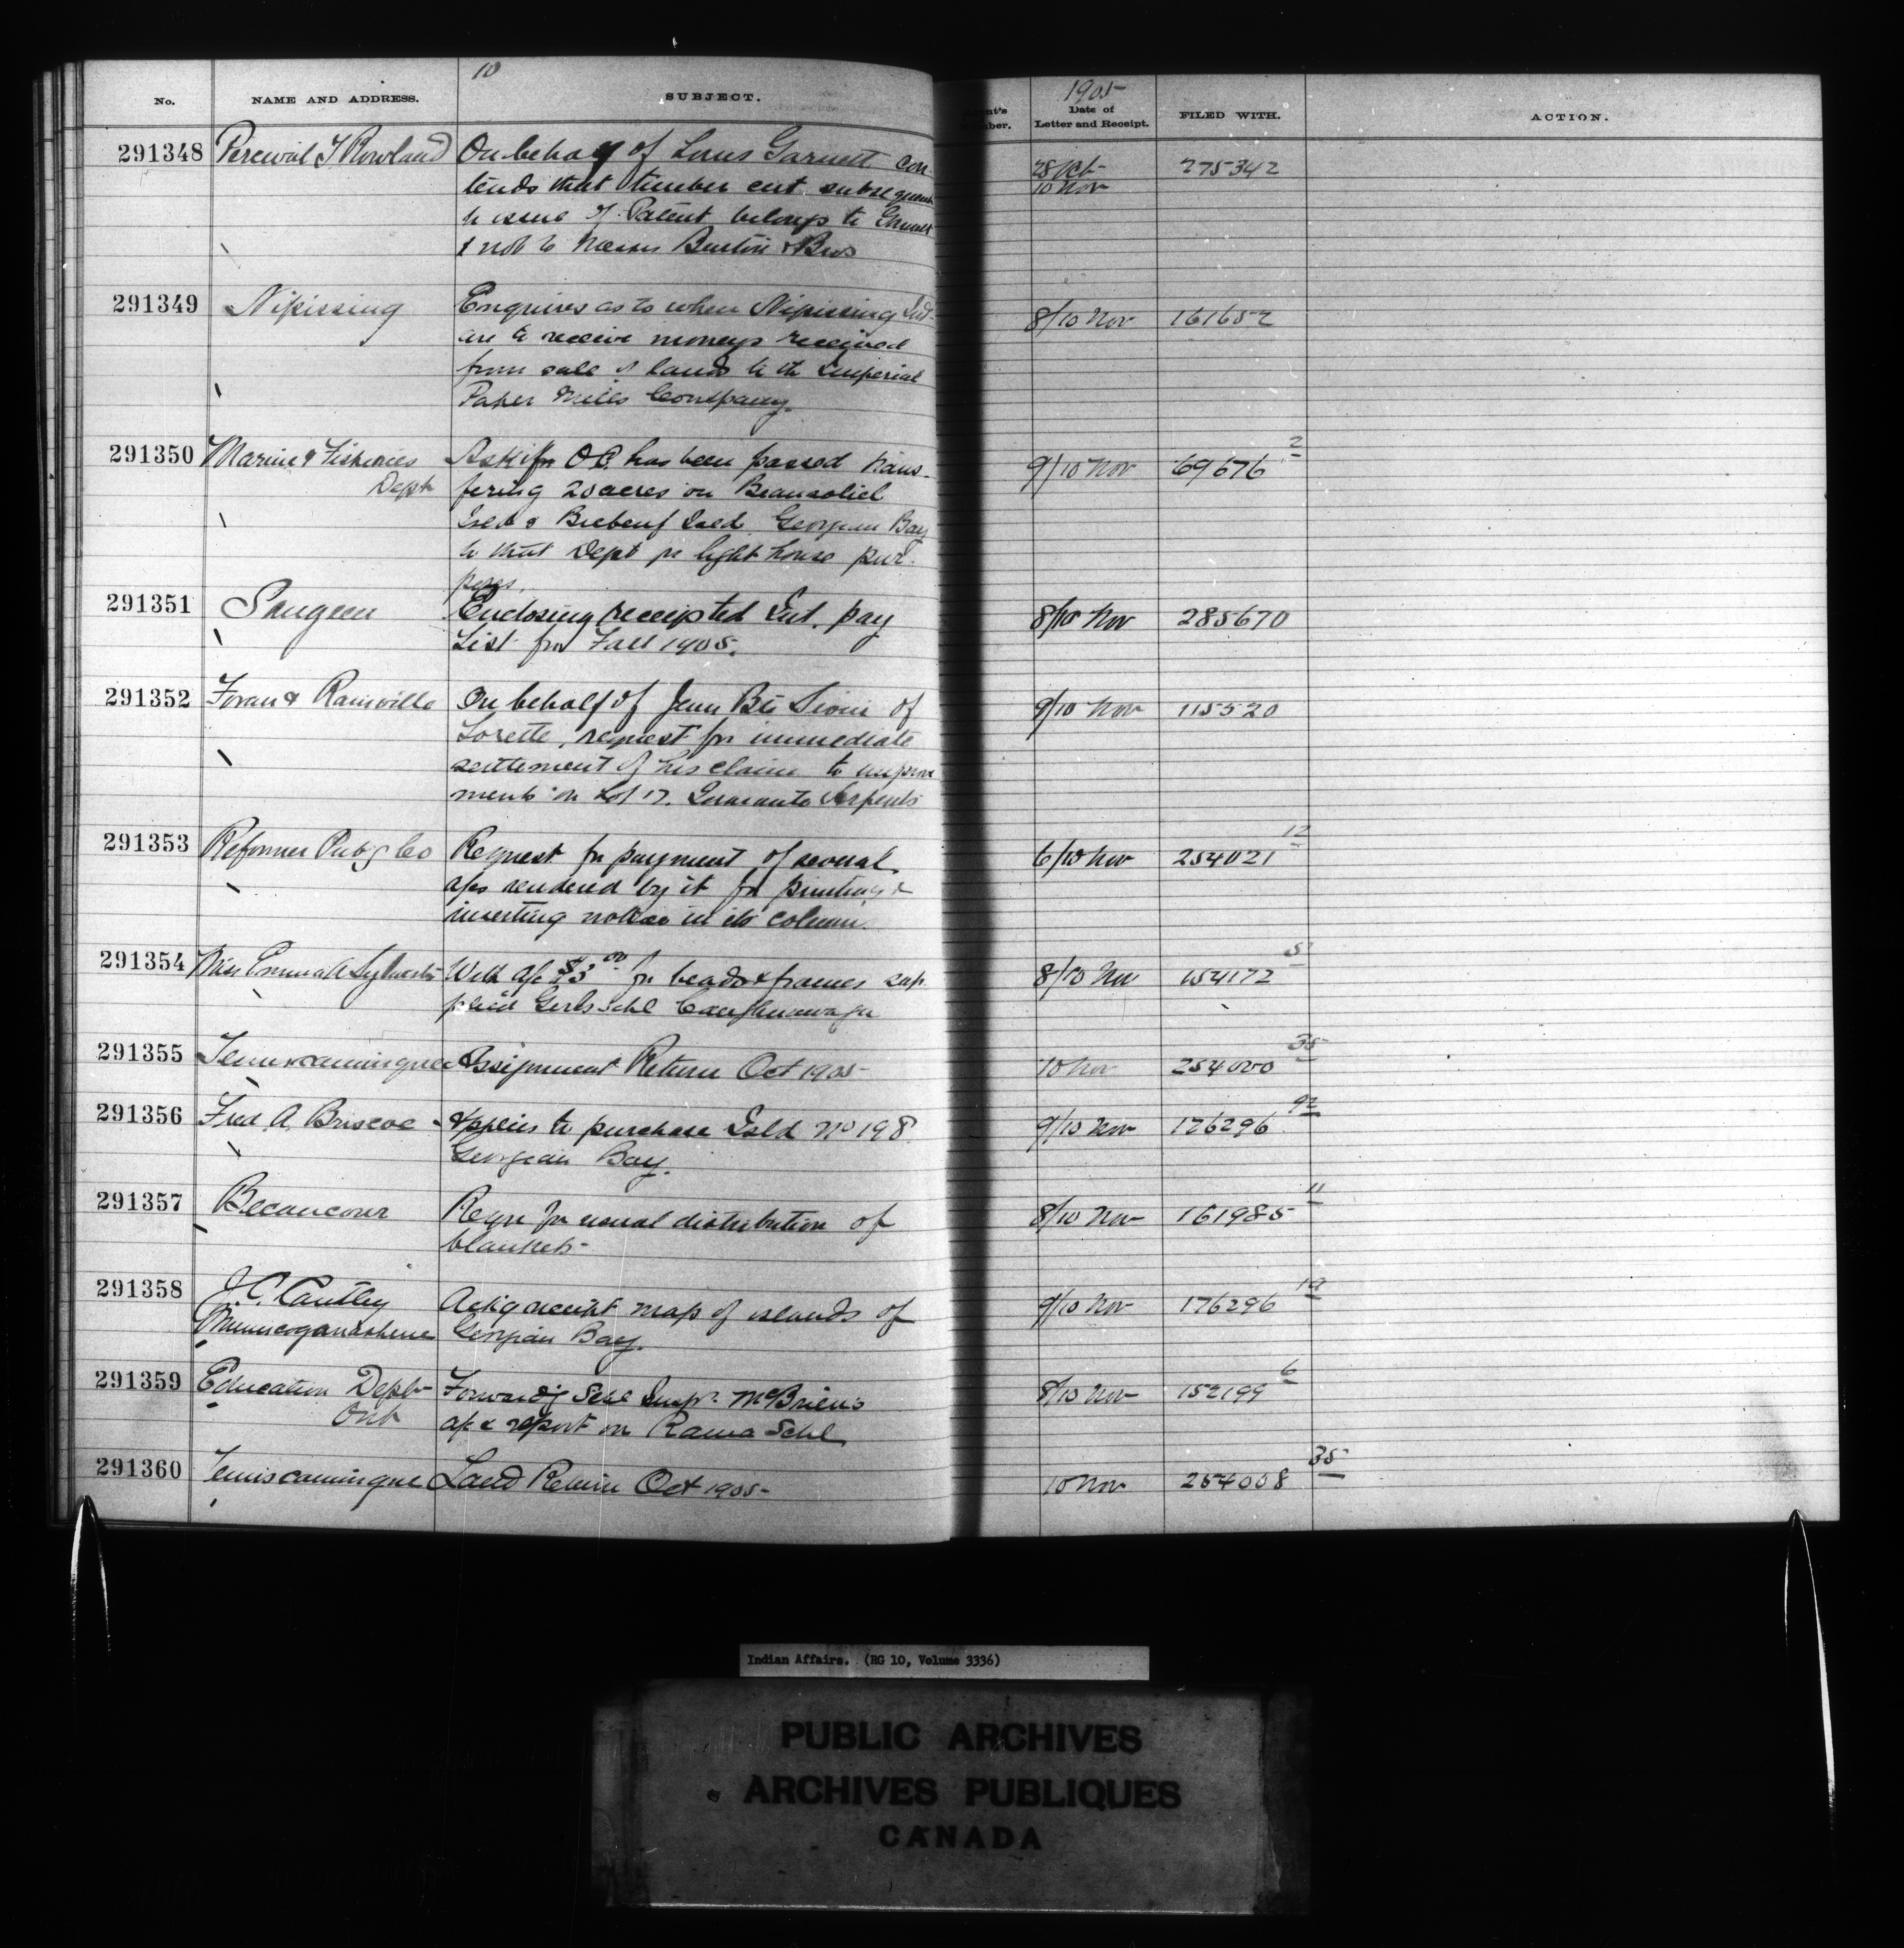 10
No. NAME AND ADDRESS. SUBJECT.
1905
Date of
Letter and Receipt. FILED WITH. ACTION.
291348 Percival T Rowland On behalf of Louis Garnett con 28 Oct 275342
tends that timber cut subsequent 10 Nov
to issue of Patent belongs to
& not to Messrs & Bros
291349 Nipissing Enquires as to when Nipissing Ind 8/10 Nov 161652
are to receive moneys received
from sale of lands to the Imperial
Paper Mills Company.
291350 Marine & Fisheries Ask if an OC has been passed trans- 9/10 Nov 69676 2
Dept fering 20 acres on Beausoliel
Isld & Brebeuf Isld Georgian Bay
to that Dept for light house pur-
poses.
291351 Saugeen Enclosing receipted Int. pay 8/10 Nov 285670
List for Fall 1905.
291352 Foran & Rainville On behalf of Jean Bte Sioui of 9/10 Nov 115520
Lorette, request for immediate
settlement of his claim to improve
ments on Lot 17.
291353 Reformer Pub'g Co Request for payment of several 6/10 Nov 254021 12
a/cs rendered by it for printing &
inserting notices in its column.
291354 Miss Emma A Sylvester With a/c $3 00 for beads & frames sup 8/10 Nov 154172 5
plied Girls Schl Caughnawaga
291355 Temiscamingue Assignment Return Oct 1905 10 Nov 254000 35
291356 Fred. A. Briscoe Applies to purchase Isld No 198 9/10 Nov 176296 92
Georgian Bay.
291357 Becancour Reqn for usual distribution of 8/10 Nov 161985 11
blankets-
291358 J. C. Cautley Ackg receipt map of islands of 9/10 Nov 176296 19
Georgian Bay.
291359 Education Dept Forwardg Schl Inspr McBrien's 8/10 Nov 152199 6
Ont a/c & report on Rama Schl
291360 Temiscamingue Land Return Oct 1905- 10 Nov 254008 35
Indian Affairs. (RG 10, Volume 3336)
PUBLIC ARCHIVES
ARCHIVES PUBLIQUES
CANADA